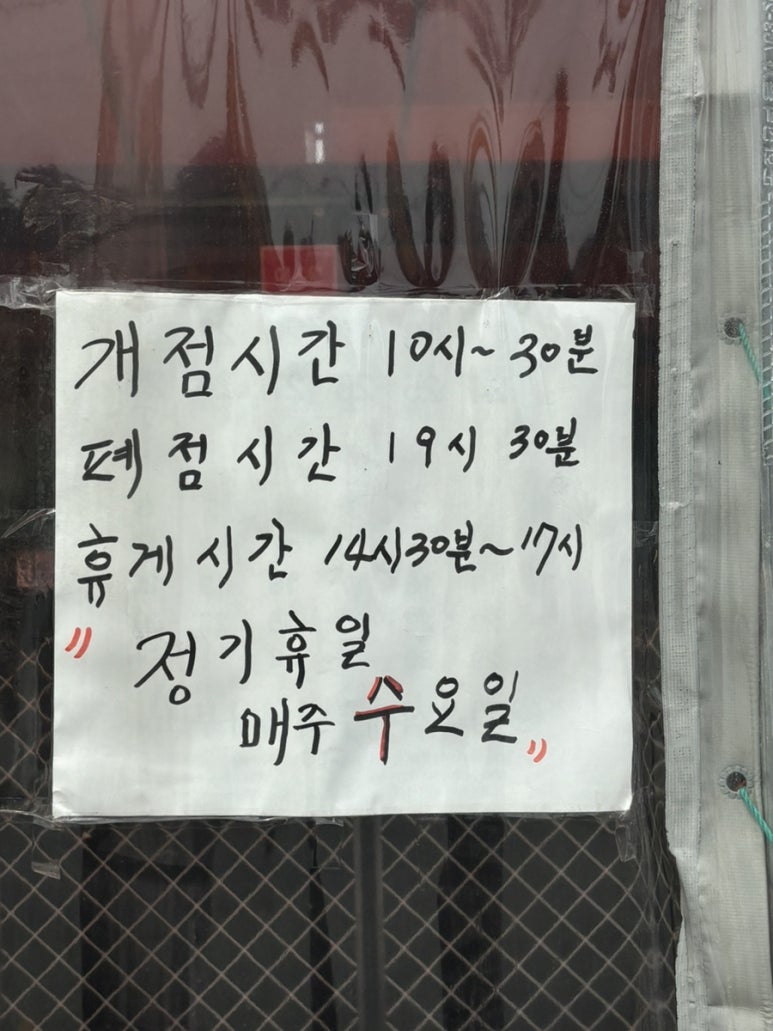 개점시간 10시~30분
폐점시간 19시 30분
휴게시간 14시30분~17시
"정기휴일
매주 수요일"